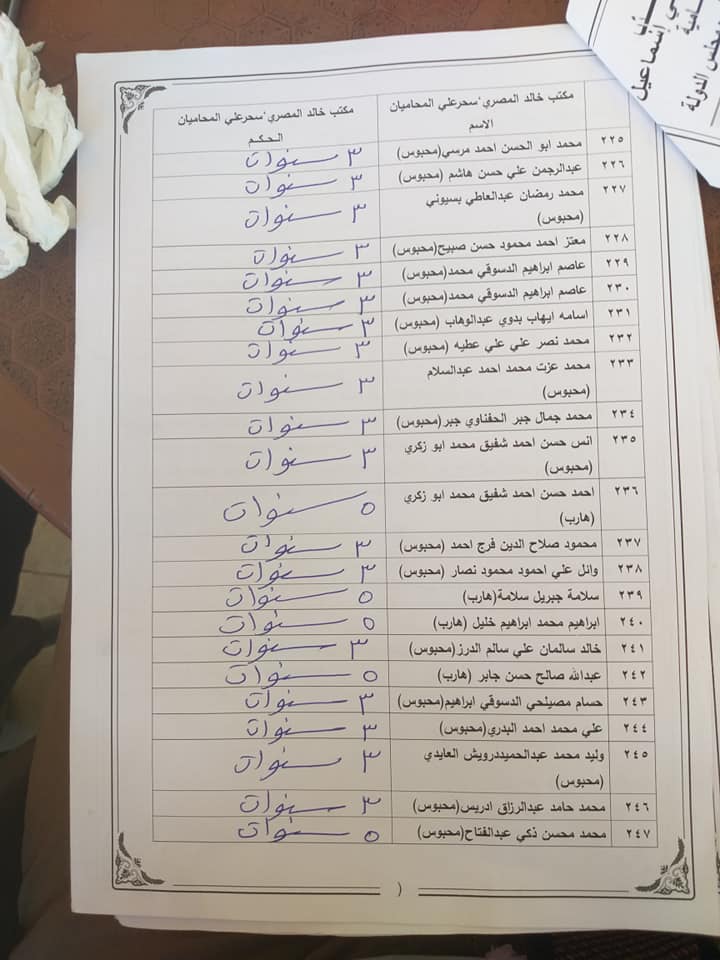 إسماعيل
مجلس الدولة
مكتب خالد المصري٬سحرعلي المحاميان
مكتب خالد المصري٬سحرعلي المحاميان
الاسم
الحكم
٢٢٥ محمد ابو الحسن احمد مرسي(محبوس) ٣ سنوات
٢٢٦ عبدالرحمن علي حسن هاشم (محبوس) ٣ سنوات
٢٢٧ محمد رمضان عبدالعاطي بسيوني ٣ سنوات
(محبوس)
٢٢٨ معتز احمد محمود حسن صبيح(محبوس) ٣ سنوات
٢٢٩ عاصم ابراهيم الدسوقي محمد(محبوس) ٣ سنوات
٢٣٠ عاصم ابراهيم الدسوقي محمد(محبوس) ٣ سنوات
٢٣١ اسامه ايهاب بدوي عبدالوهاب (محبوس) ٣ سنوات
٢٣٢ محمد نصر علي علي عطيه (محبوس) ٣ سنوات
٢٣٣ محمد عزت محمد احمد عبدالسلام ٣ سنوات
(محبوس)
٢٣٤ محمد جمال جبر الحفناوي جبر(محبوس) ٣ سنوات
٢٣٥ انس حسن احمد شفيق محمد ابو زكري ٣ سنوات
(محبوس)
٢٣٦ احمد حسن احمد شفيق محمد ابو زكري ٥ سنوات
(هارب)
٢٣٧ محمود صلاح الدين فرج احمد (محبوس) ٣ سنوات
٢٣٨ وائل علي احمود محمود نصار (محبوس) ٣ سنوات
٢٣٩ سلامة جبريل سلامة(هارب) ٥ سنوات
٢٤٠ ابراهيم محمد ابراهيم خليل (هارب) ٥ سنوات
٢٤١ خالد سالمان علي سالم الدرز(محبوس) ٣ سنوات
٢٤٢ عبدالله صالح حسن جابر (هارب) ٥ سنوات
٢٤٣ حسام مصيلحي الدسوقي ابراهيم(محبوس) ٣ سنوات
٢٤٤ علي محمد احمد البدري(محبوس) ٣ سنوات
٢٤٥ وليد محمد عبدالحميددرويش العايدي ٣ سنوات
(محبوس)
٢٤٦ محمد حامد عبدالرزاق ادريس(محبوس) ٣ سنوات
٢٤٧ محمد محسن ذكي عبدالفتاح(محبوس) ٥ سنوات